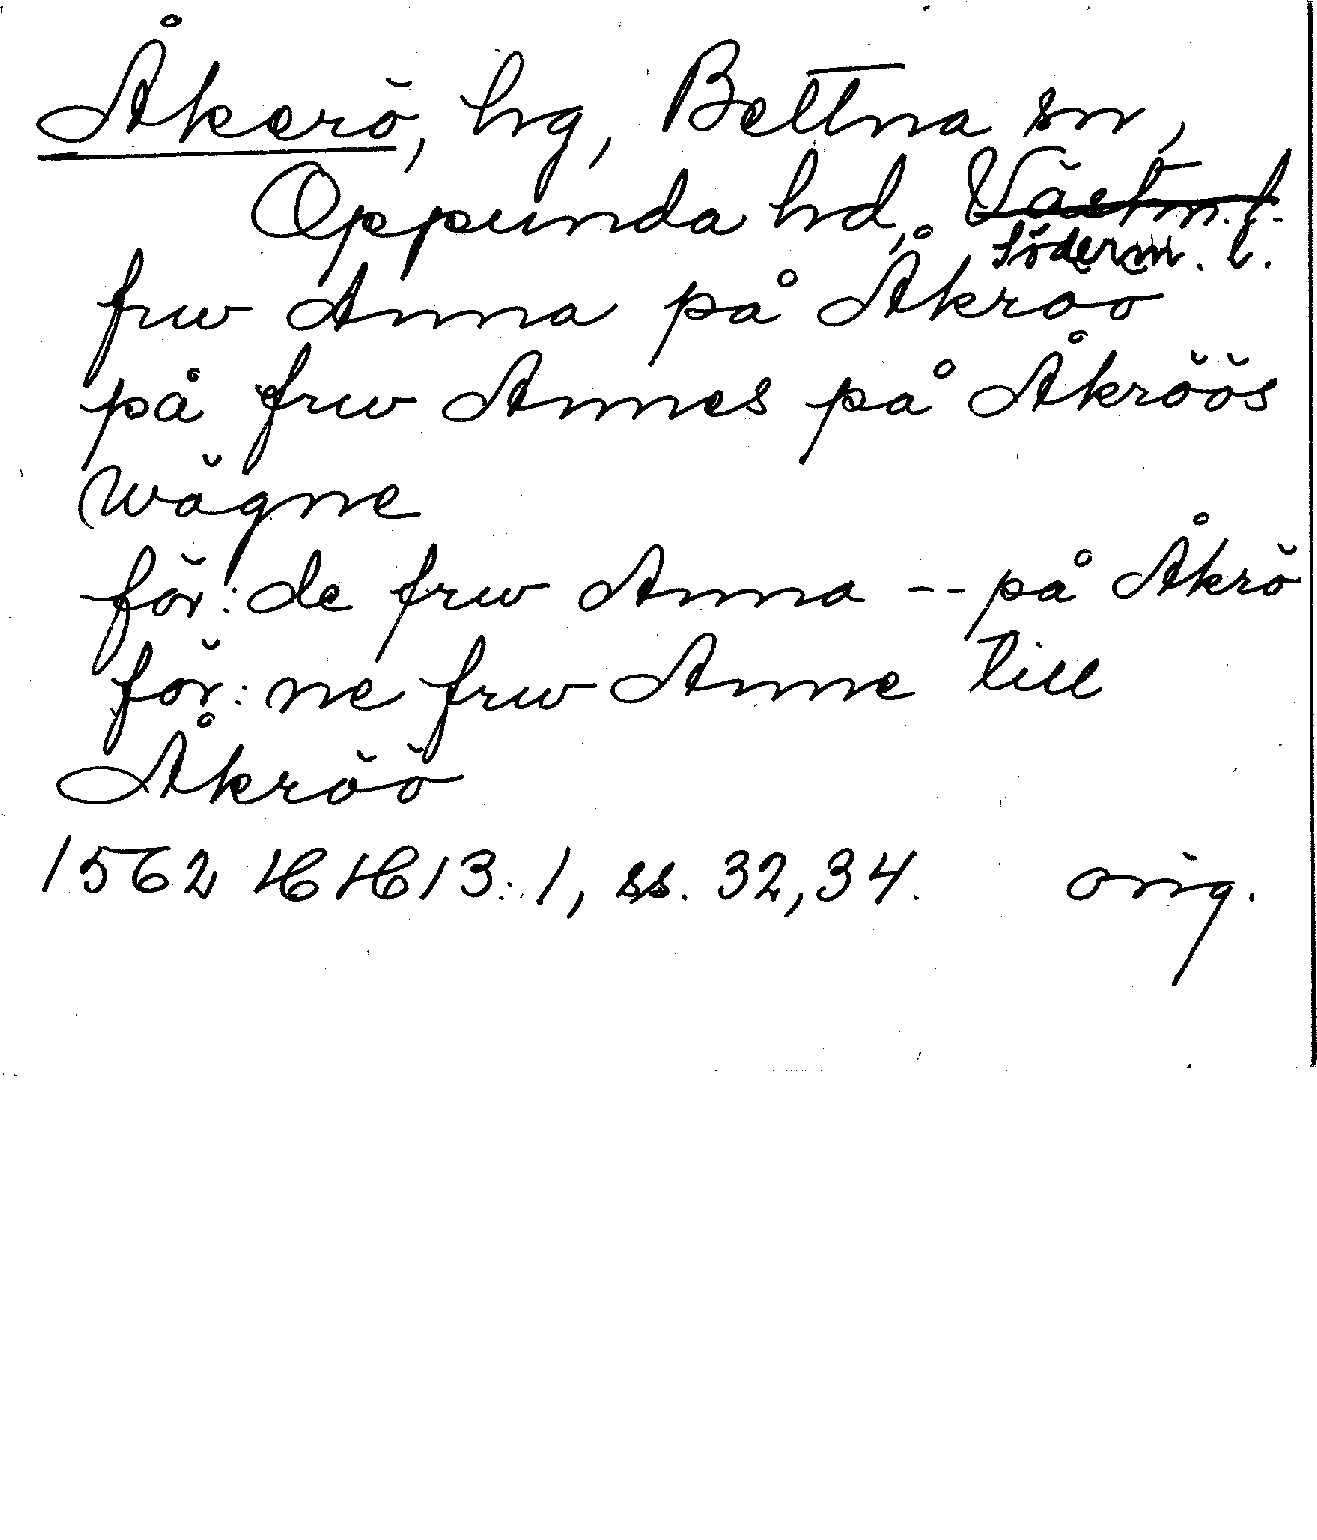 Åkerö, hg, Bettna sn,
Oppunda hd, Västm. l.
Söderm. l.
frw Anna på Åkroo
på frw Annes på Åkröös
wägne
för:de frw Anna -- på Åkrö
för:ne frw Anne till
Åkröö
1562 HH 13:1, ss. 32, 34. orig.